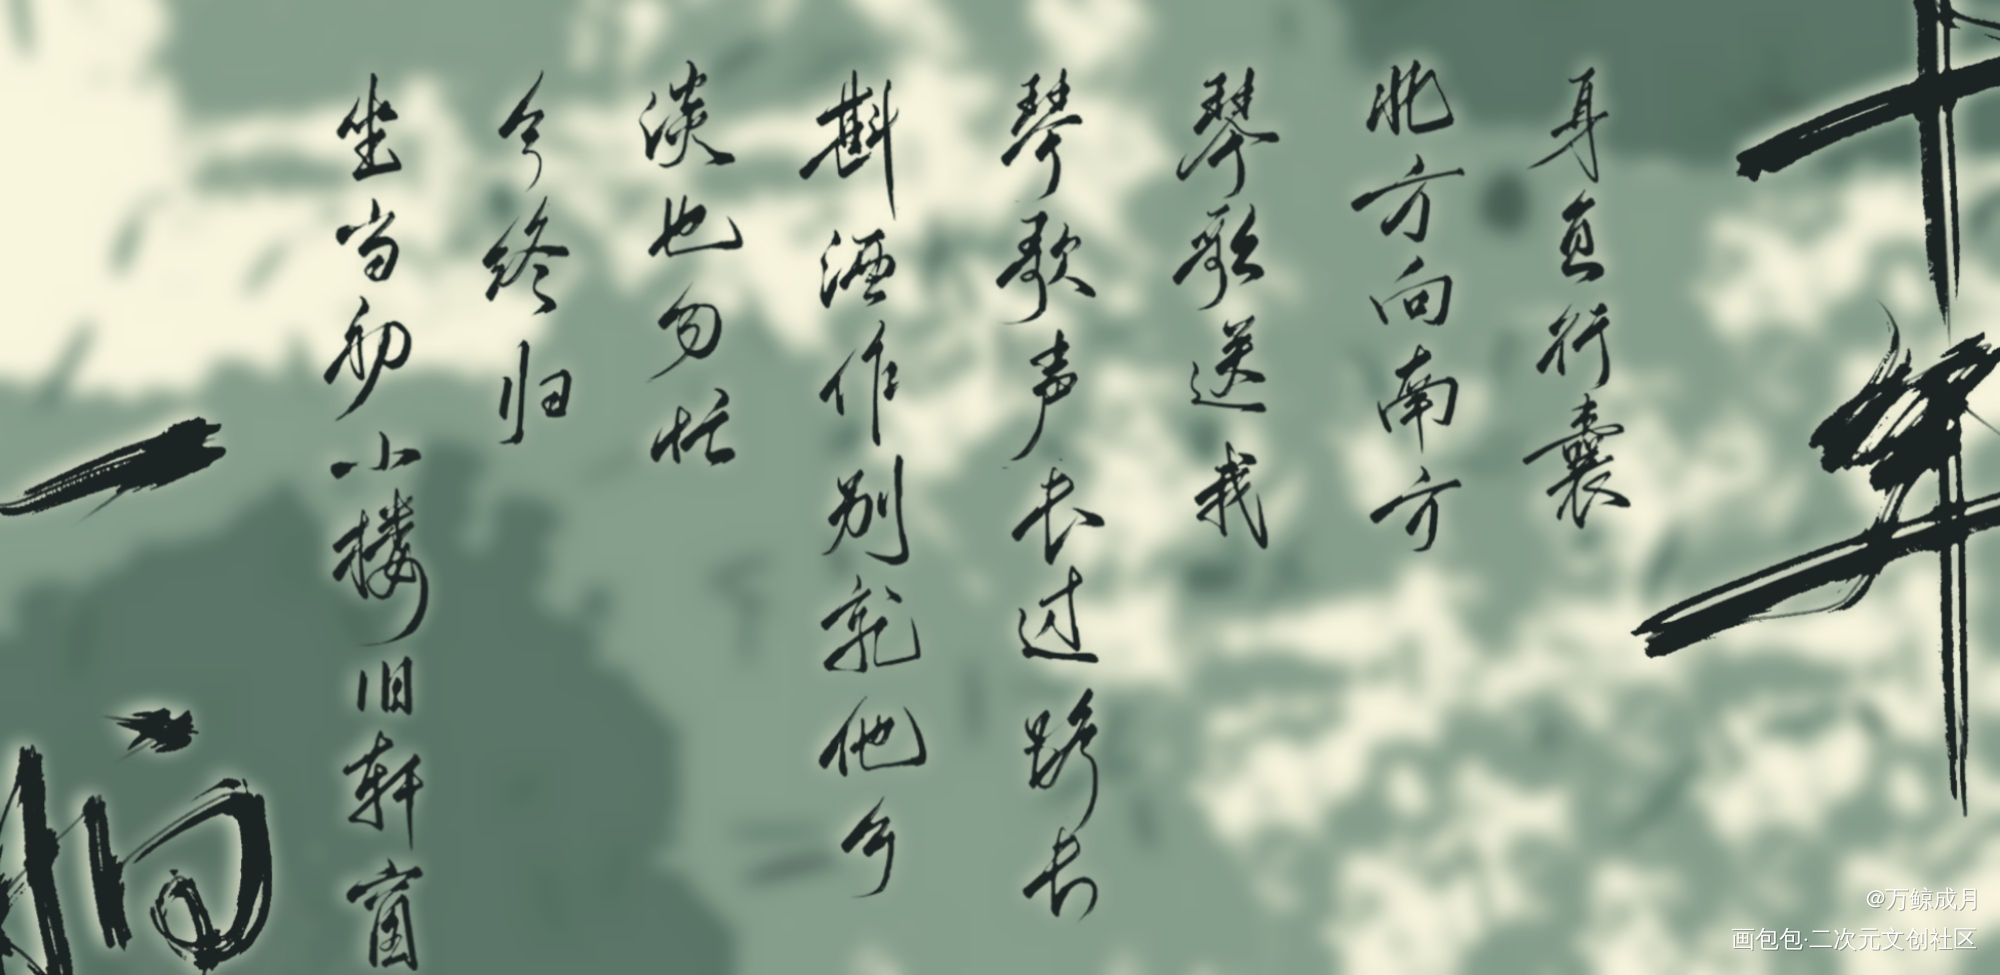 十年
身负行囊
北方向南方
琴歌送我
琴歌声长过路长
斟酒作别就他乡
淡也勿忙
今终归
坐当初小楼旧轩窗
一响
@万鲸成月
画包包·二次元文创社区